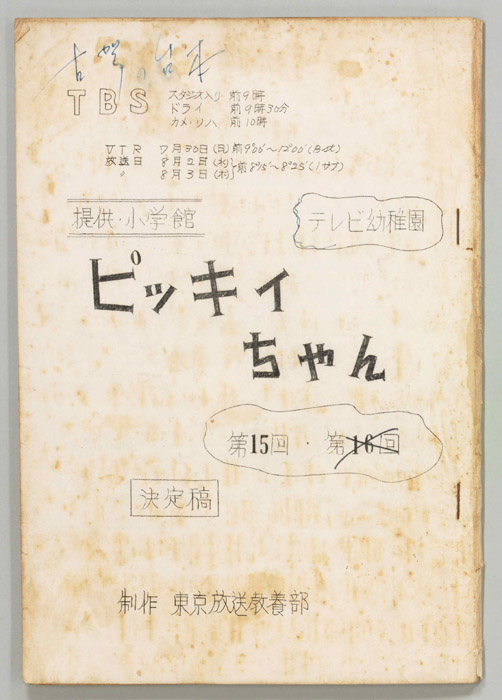 台本
TBS
スタジオ入り 前9時
ドライ 前9時30分
カメ・リハ 前10時
VTR 7月30日(日)前9°00'~12°00'(Bst)
放送日 8月2日(水)
〃 8月3日(木)
前8°15'~8°25'(1サブ)
提供・小学館
テレビ幼稚園
ピッキィ
ちゃん
第15回・第16回
決定稿
制作 東京放送教養部